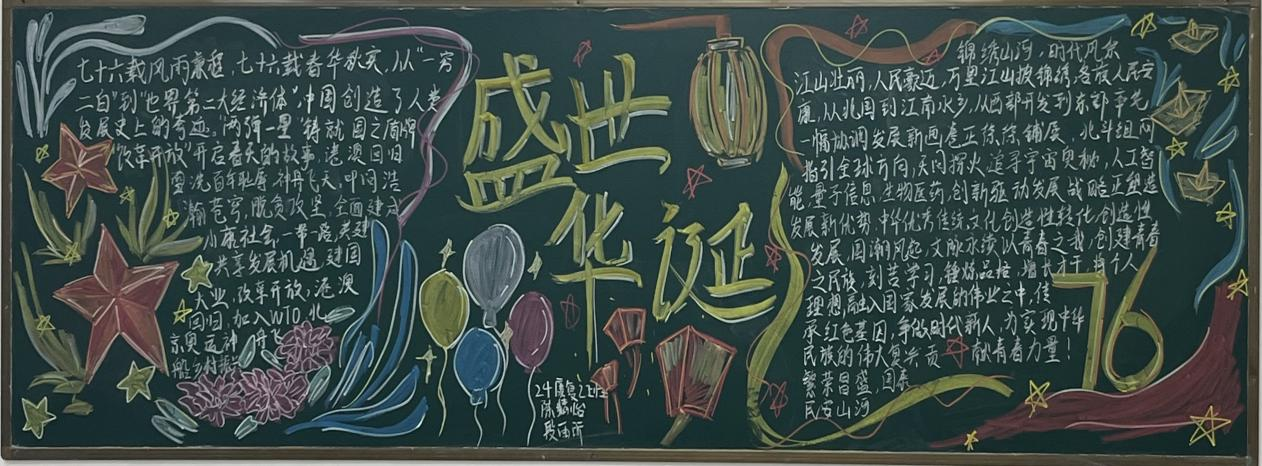 七十六载风雨兼程,七十六载春华秋实,从"一穷
二白"到"世界第二大经济体",中国创造了人类
发展史上的奇迹。"两弹一星"铸就国之盾牌
"改革开放"开启春天的故事,港澳回归
洗百年耻辱,神舟飞天,叩问浩
瀚苍穹,脱贫攻坚,全面建成
小康社会,一带一路,共建
共享发展机遇,建国
大业,改革开放,港澳
回归,加入WTO,北
京奥运神舟飞
船
盛世
华诞
24
陈
锦绣山河,时代风采
江山壮丽,人民豪迈,万里江山披锦绣,各族人民安
康,从北国到江南水乡,从西部开发到东部率先
一幅协调发展新画卷正徐徐铺展,北斗组网
指引全球方向,天问探火追寻宇宙奥秘,人工智
能,量子信息,生物医药,创新驱动发展战略正塑造
发展新优势,中华优秀传统文化创造性转化,创造性
发展,国潮风起,文脉永续以青春之我,创建青春
之民族,刻苦学习,锤炼品格,增长才干,将个人
理想融入国家发展的伟业之中,传
承红色基因,争做时代新人,为实现中华
民族的伟大复兴贡献青春力量!
繁荣昌盛,国泰
民安山河
76